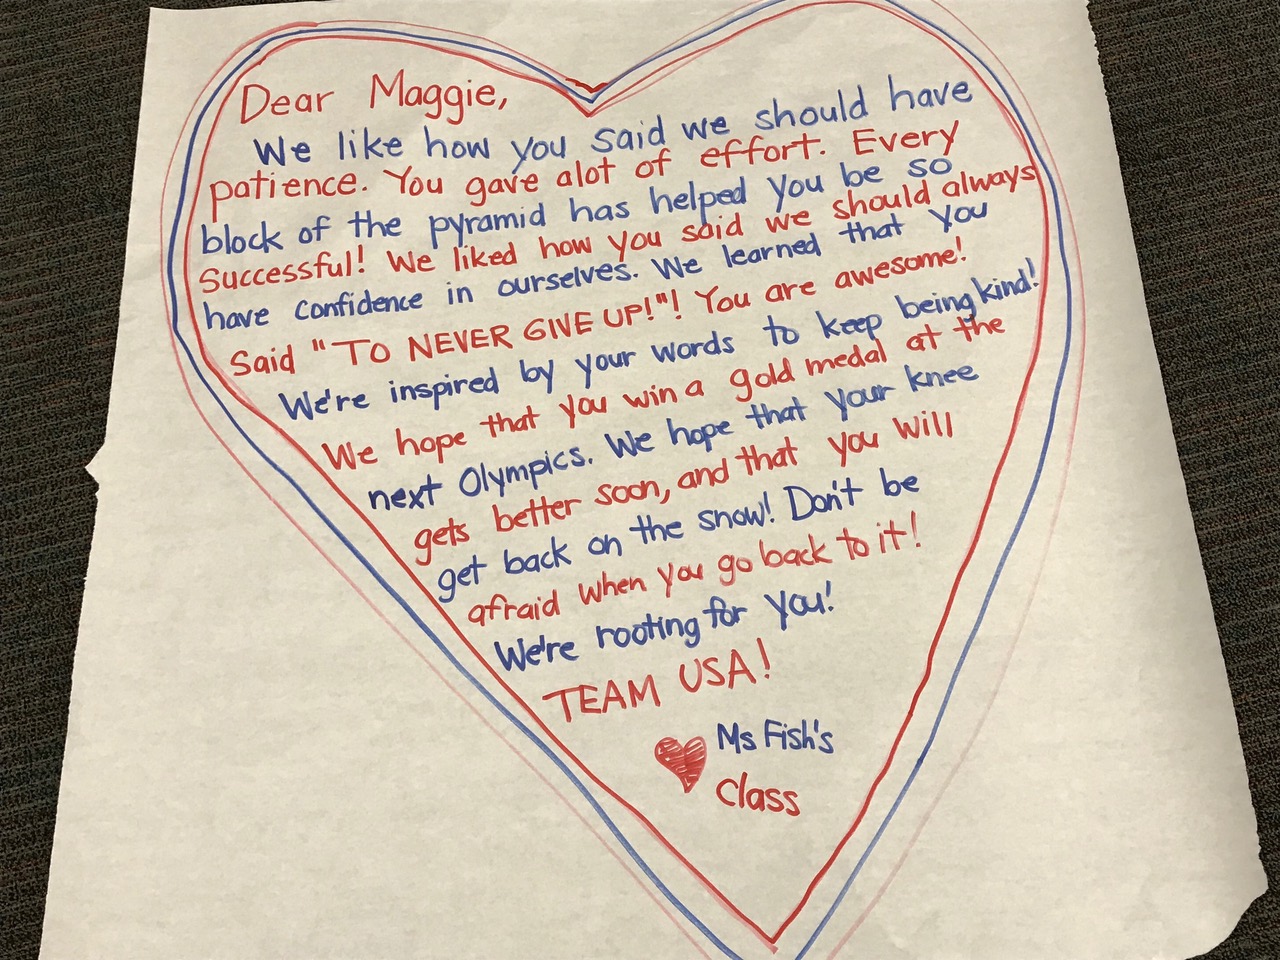 Dear Maggie,
We like how you said we should have
patience. You gave alot of effort. Every
block of the pyramid has helped you be so
Successful! We liked how you said we should always
have confidence in ourselves. We learned that you
Said "TO NEVER GIVE UP!"! You are awesome!
We're inspired by your words to keep being kind!
We hope that you win a gold medal at the
next Olympics. We hope that your knee
gets better soon, and that you will
get back on the snow! Don't be
afraid when you go back to it!
We're rooting for you!
TEAM USA!
Ms Fish's
Class